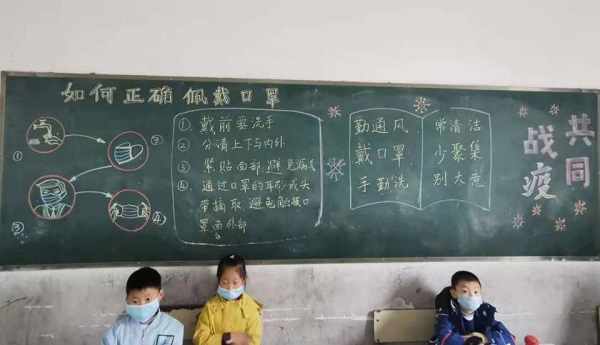 如何正确佩戴口罩
①
②
③
④
① 戴前要洗手
② 分清上下与内外
③ 紧贴面部,避免漏气
④ 通过口罩的耳带或头
带摘取 避免触摸口
罩面外部
勤通风,
戴口罩,
手勤洗
常清洁
少聚集
别大意
共同
战疫